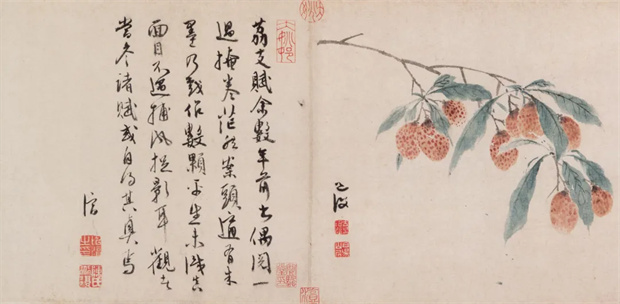 道復
荔支賦余數年前書偶閱一
過掩卷茫然案頭適有朱
墨乃戲作數顆平生未識真
面目不過捕風捉影耳觀者
當參諸賦或自得其真焉
淳